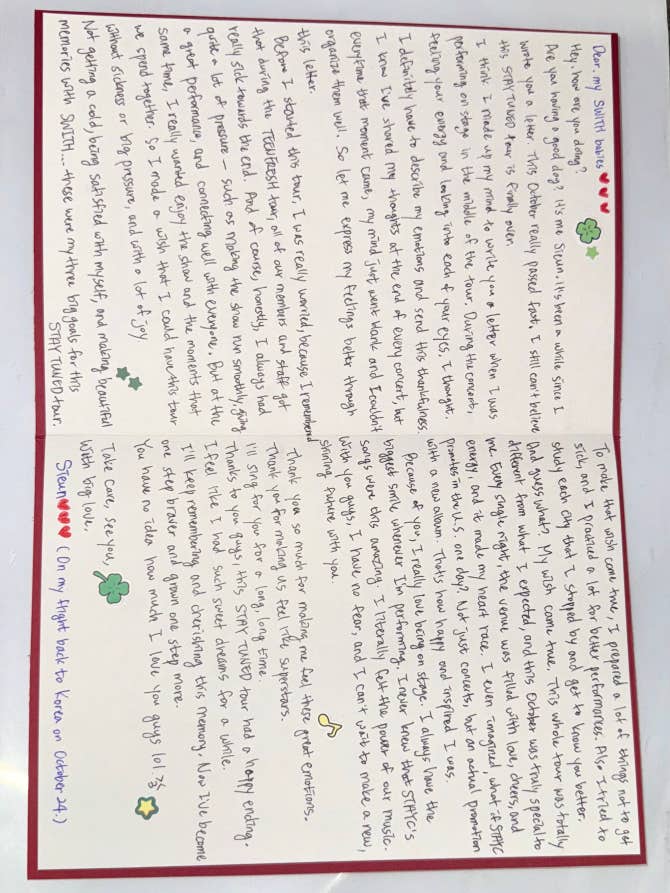 Dear. my SWITH babies
Hey, how are you doing?
Are you having a good day? It's me Sieun. It's been a while since I
wrote you a letter. This October really passed fast. I still can't believe
this STAY TUNED tour is finally over.
I think I made up my mind to write you a letter when I was
performing on stage in the middle of the tour. During the concert,
feeling your energy and looking into each of your eyes, I thought,
I definitely have to describe my emotions and send this thankfulness.
I know I've shared my thoughts at the end of every concert, but
everytime that moment came, my mind just went blank and I couldn't
organize them well. So let me express my feelings better through
this letter.
Before I started this tour, I was really worried, because I remembered
that during the TEENFRESH tour, all of our members and staff got
really sick towards the end. And of course, honestly, I always had
quite a lot of pressure - such as making the show run smoothly, giving
a great performance, and connecting well with everyone. But at the
same time, I really wanted enjoy the show and the moments that
we spend together. So I made a wish that I could have this tour
without sickness or big pressure, and with a lot of joy
Not getting a cold, being satisfied with myself, and making beautiful
memories with SWITH... these were my three big goals for this
STAY TUNED tour.
To make that wish come true, I prepared a lot of things not to get
sick, and I practiced a lot for better performances. Also I tried to
study each city that I stopped by and get to know you better.
And guess what? My wish came true. This whole tour was totally
different from what I expected and this October was truly special to
me. Every single night, the venue was filled with love, cheers, and
energy, and it made my heart race. I even imagined, what if STAYC
promotes in the U.S. one day? Not just concerts, but an actual promotion
with a new album. That's how happy and inspired I was.
Because of you, I really love being on stage. I always have the
biggest smile whenever I'm performing. I never knew that STAYC's
songs were this amazing. I literally felt the power of our music.
With you guys, I have no fear, and I can't wait to make a new,
shining future with you.
Thank you so much for making me feel these great emotions.
Thank you for making us feel like superstars.
I'll sing for you for a long, long time.
Thanks to you guys, this STAY TUNED tour had a happy ending.
I feel like I had such sweet dreams for a while.
I'll keep remembering and cherishing this memory. Now I've become
one step braver and grown one step more.
You have no idea how much I love you guys lol.
Take care, see you,
With big love,
Sieun (On my flight back to Korea on October 24.)